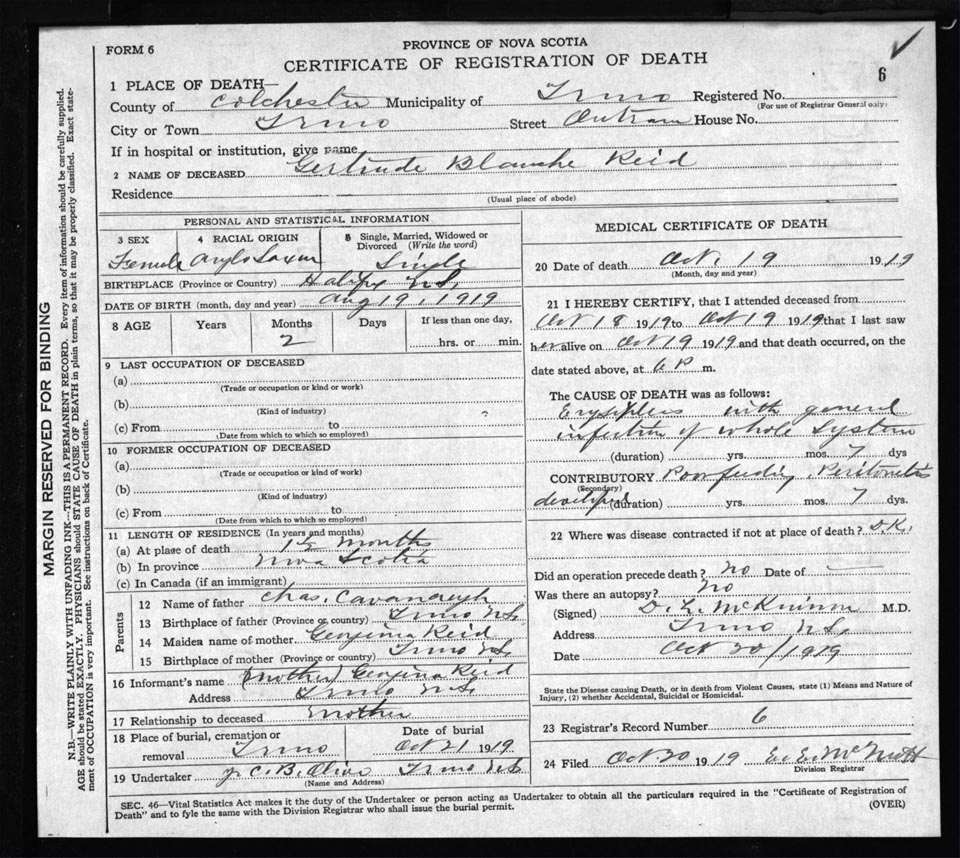 FORM 6
PROVINCE OF NOVA SCOTIA
CERTIFICATE OF REGISTRATION OF DEATH
6
1 PLACE OF DEATH
County of Colchester Municipality of Truro Registered No.
(For use of Registrar General only)
City or Town Truro Street Outram House No.
If in hospital or institution, give name
2 NAME OF DECEASED Gertrude Blanche Reid
Residence
(Usual place of abode)
PERSONAL AND STATISTICAL INFORMATION
3 SEX Female
4 RACIAL ORIGIN Anglo Saxon
5 Single, Married, Widowed or Divorced (Write the word) Single
BIRTHPLACE (Province or Country) Halifax N.S.
DATE OF BIRTH (month, day and year) Aug 19, 1919
8 AGE Years Months 2 Days If less than one day, hrs. or min.
9 LAST OCCUPATION OF DECEASED
(a)
(Trade or occupation or kind or work)
(b)
(Kind of industry)
(c) From to
(Date from which to which so employed)
10 FORMER OCCUPATION OF DECEASED
(a)
(Trade or occupation or kind or work)
(b)
(Kind of industry)
(c) From to
(Date from which to which so employed)
11 LENGTH OF RESIDENCE (In years and months)
(a) At place of death 1½ months
(b) In province Nova Scotia
(c) In Canada (if an immigrant)
Parents
12 Name of father Chas. Cavanaugh
13 Birthplace of father (Province or country) Truro N.S.
14 Maiden name of mother Georgina Reid
15 Birthplace of mother (Province or country) Truro N.S.
16 Informant's name (Mother) Georgina Reid
Address Truro N.S.
17 Relationship to deceased Mother
18 Place of burial, cremation or removal Truro
Date of burial Oct 21 1919
19 Undertaker J.C.B. Olive Truro N.S.
(Name and Address)
MEDICAL CERTIFICATE OF DEATH
20 Date of death Oct. 19 1919
(Month, day and year)
21 I HEREBY CERTIFY, that I attended deceased from
Oct 18 1919 to Oct 19 1919 that I last saw
her alive on Oct 19 1919 and that death occurred, on the
date stated above, at 6 P. m.
The CAUSE OF DEATH was as follows:
Erysipelas with general
infection of whole system
(duration) yrs. mos. 7 dys
CONTRIBUTORY Poor feeding. Peritonitis
(Secondary)
developed (duration) yrs. mos. 7 dys.
22 Where was disease contracted if not at place of death? D.K.
Did an operation precede death? No Date of
Was there an autopsy? No
(Signed) McKinnon M.D.
Address Truro N.S.
Date Oct 20/1919
State the Disease causing Death, or in death from Violent Causes, state (1) Means and Nature of
Injury, (2) whether Accidental, Suicidal or Homicidal.
23 Registrar's Record Number 6
24 Filed Oct 20 1919 E. E. McNutt
Division Registrar
SEC. 46—Vital Statistics Act makes it the duty of the Undertaker or person acting as Undertaker to obtain all the particulars required in the "Certificate of Registration of
Death" and to fyle the same with the Division Registrar who shall issue the burial permit.
(OVER)
MARGIN RESERVED FOR BINDING
N.B.—WRITE PLAINLY WITH UNFADING INK—THIS IS A PERMANENT RECORD. Every item of information should be carefully supplied.
AGE should be stated EXACTLY. PHYSICIANS should STATE CAUSE OF DEATH in plain terms, so that it may be properly classified. Exact state-
ment of OCCUPATION is very important. See instructions on back of Certificate.